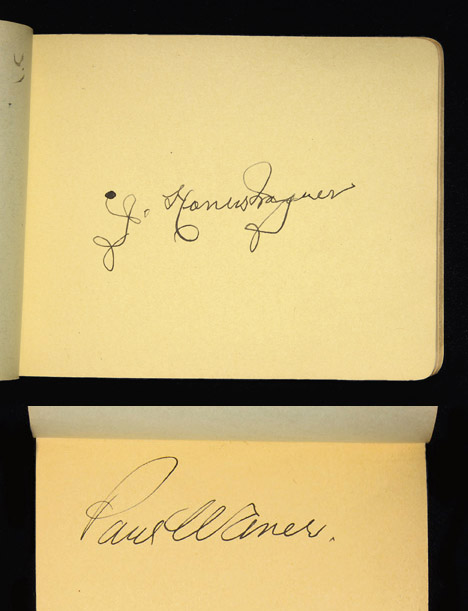 J. Honus Wagner
Paul Waner.